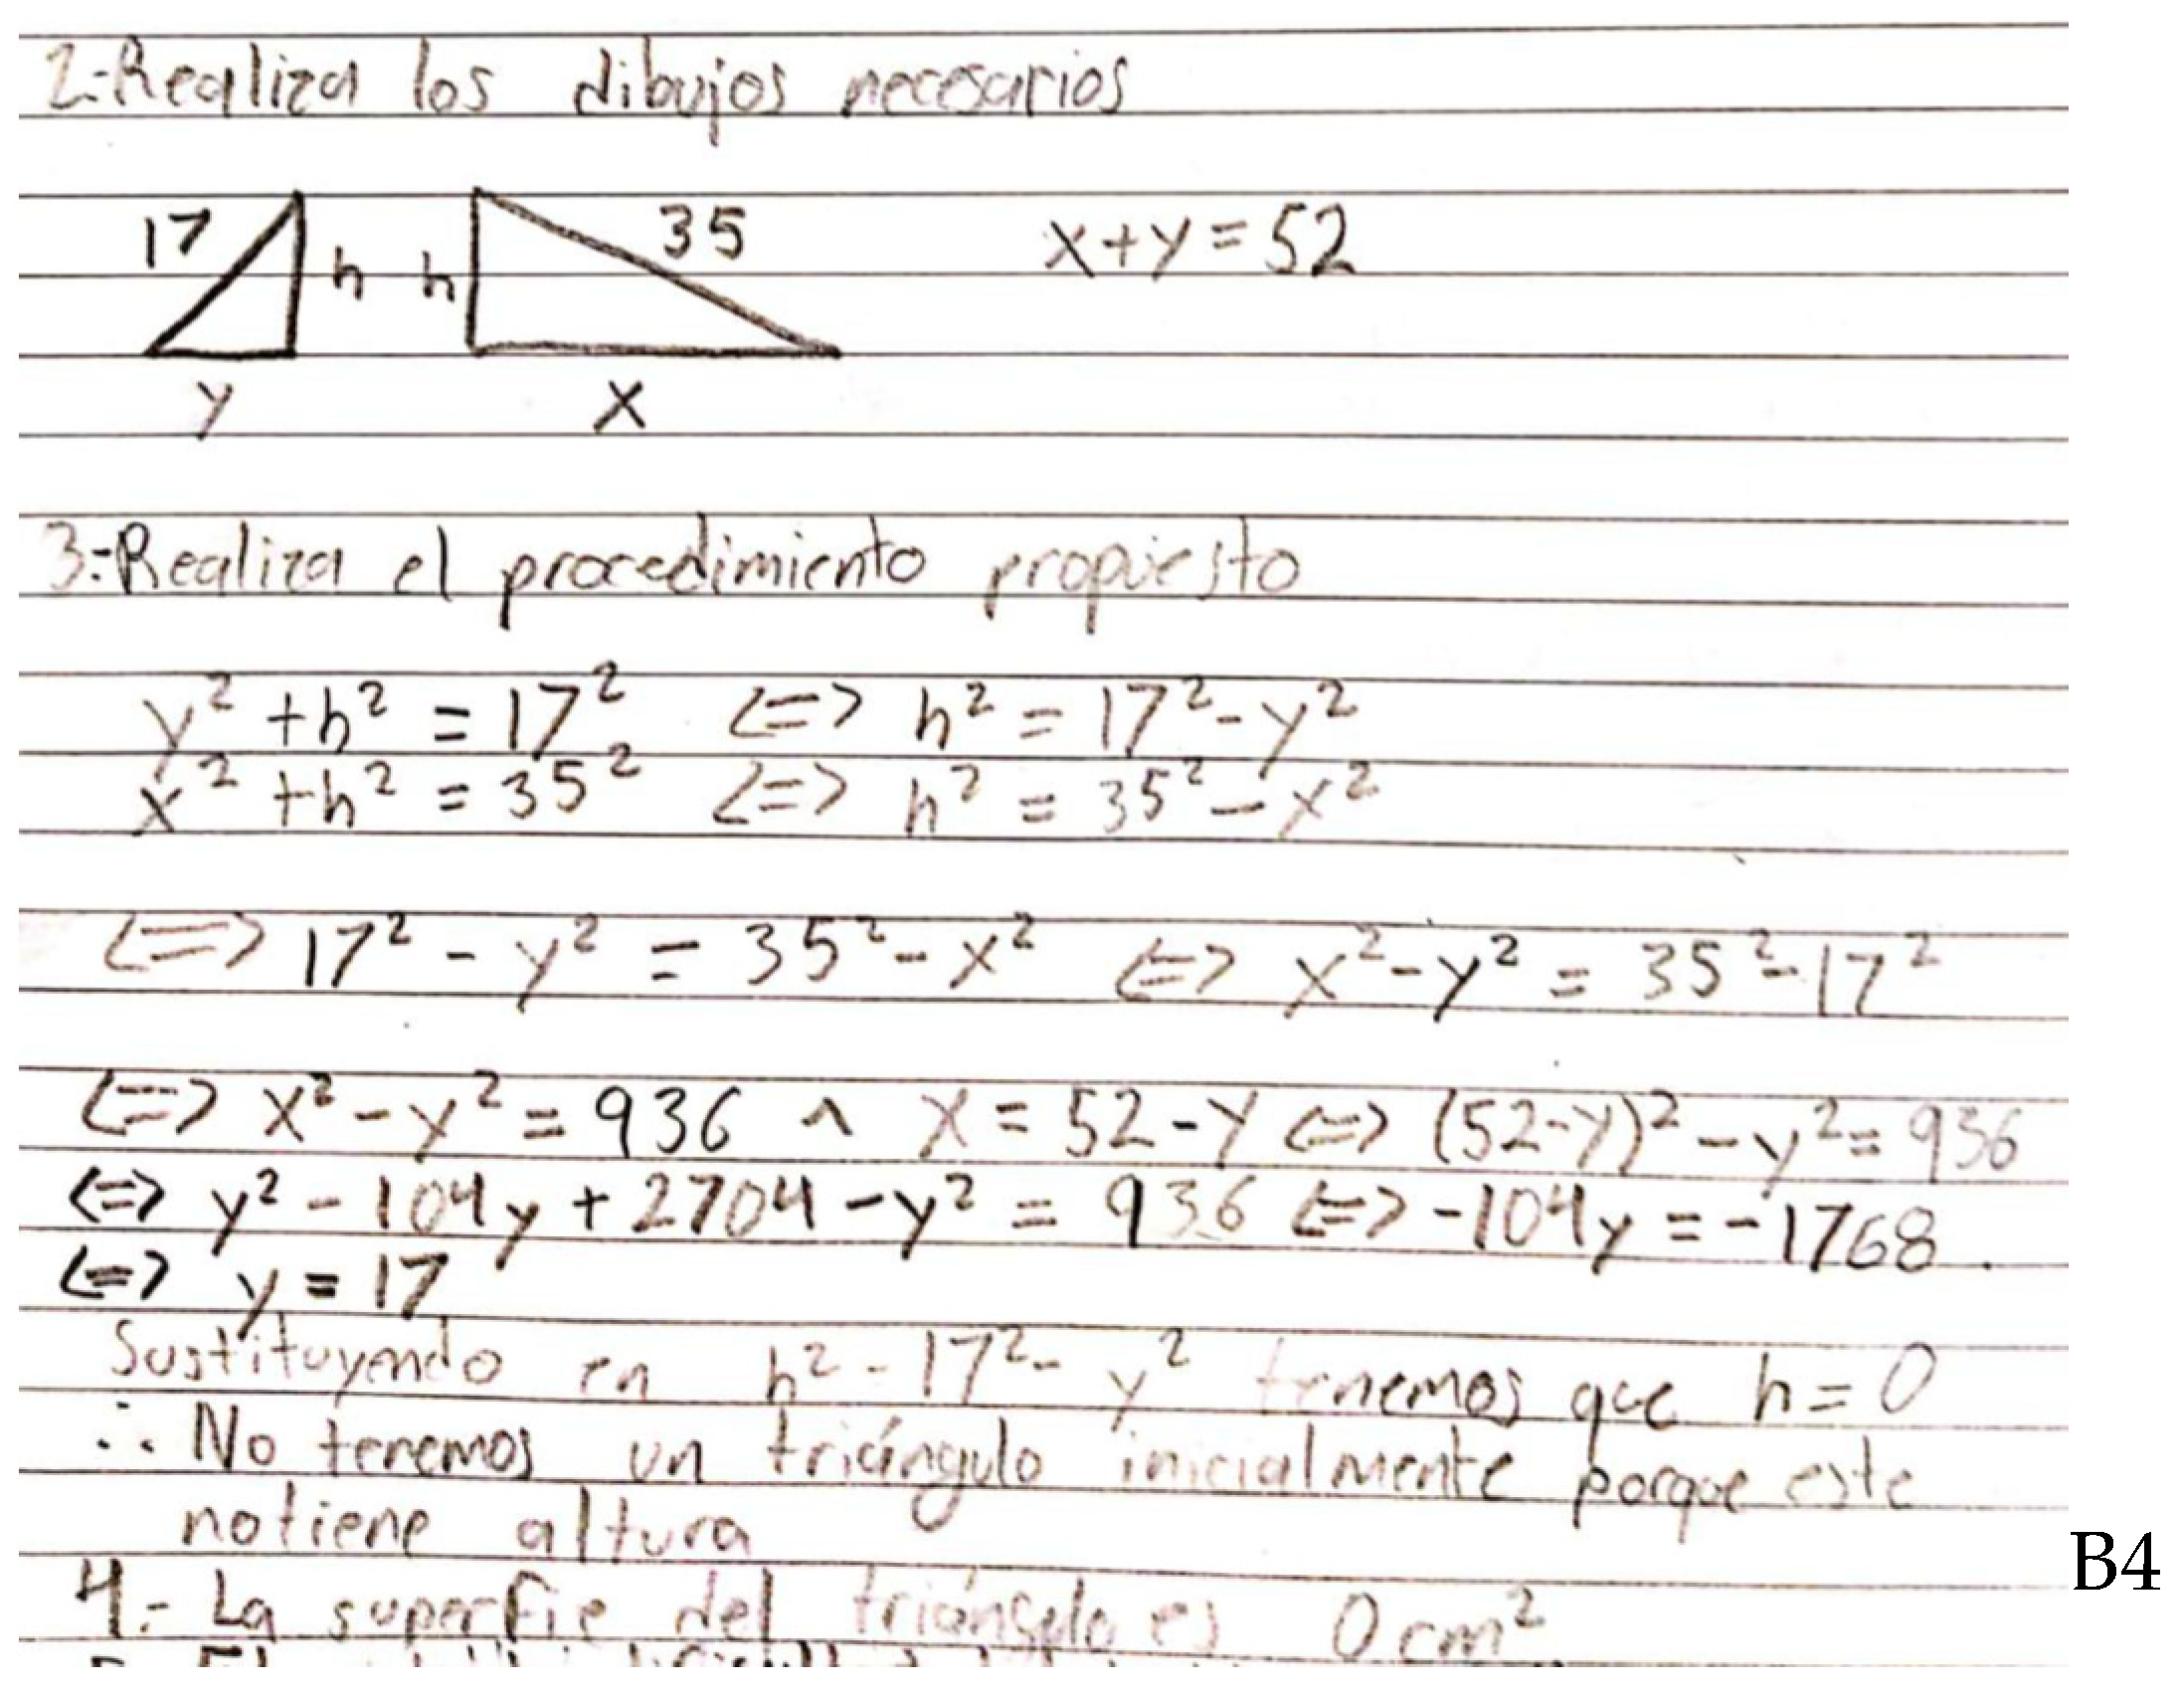 2.-Realiza los dibujos necesarios
17 h h 35 x+y=52
y x
3.-Realiza el procedimiento propuesto
y² +h² = 17² <=> h² = 17²-y²
x² +h² = 35² <=> h² = 35²-x²
<=> 17² - y² = 35²-x² <=> x²-y² = 35²-17²
<=> x²-y² = 936 ^ x = 52-y <=> (52-y)² - y² = 936
<=> y² - 104y + 2704 - y² = 936 <=> -104y = -1768.
<=> y = 17
Sustituyendo en h² - 17² - y² tenemos que h = 0
∴ No tenemos un triángulo inicialmente porque este
no tiene altura
B4
4.- La superfie del triángulo es 0 cm²